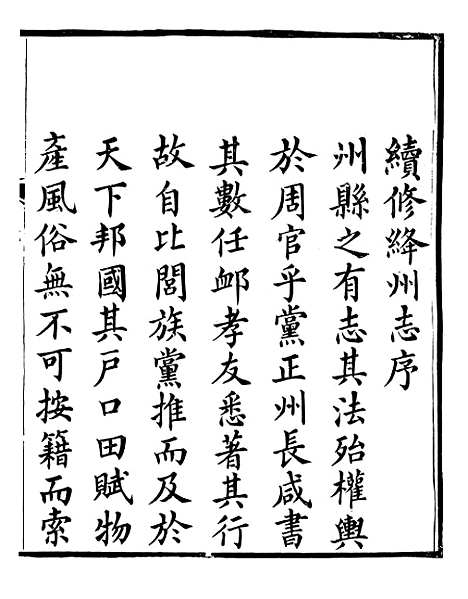 續修絳州志序
州縣之有志其法殆權輿
於周官乎黨正州長咸書
其數任卹孝友悉著其行
故自比閭族黨推而及於
天下邦國其戸口田賦物
產風俗無不可按籍而索